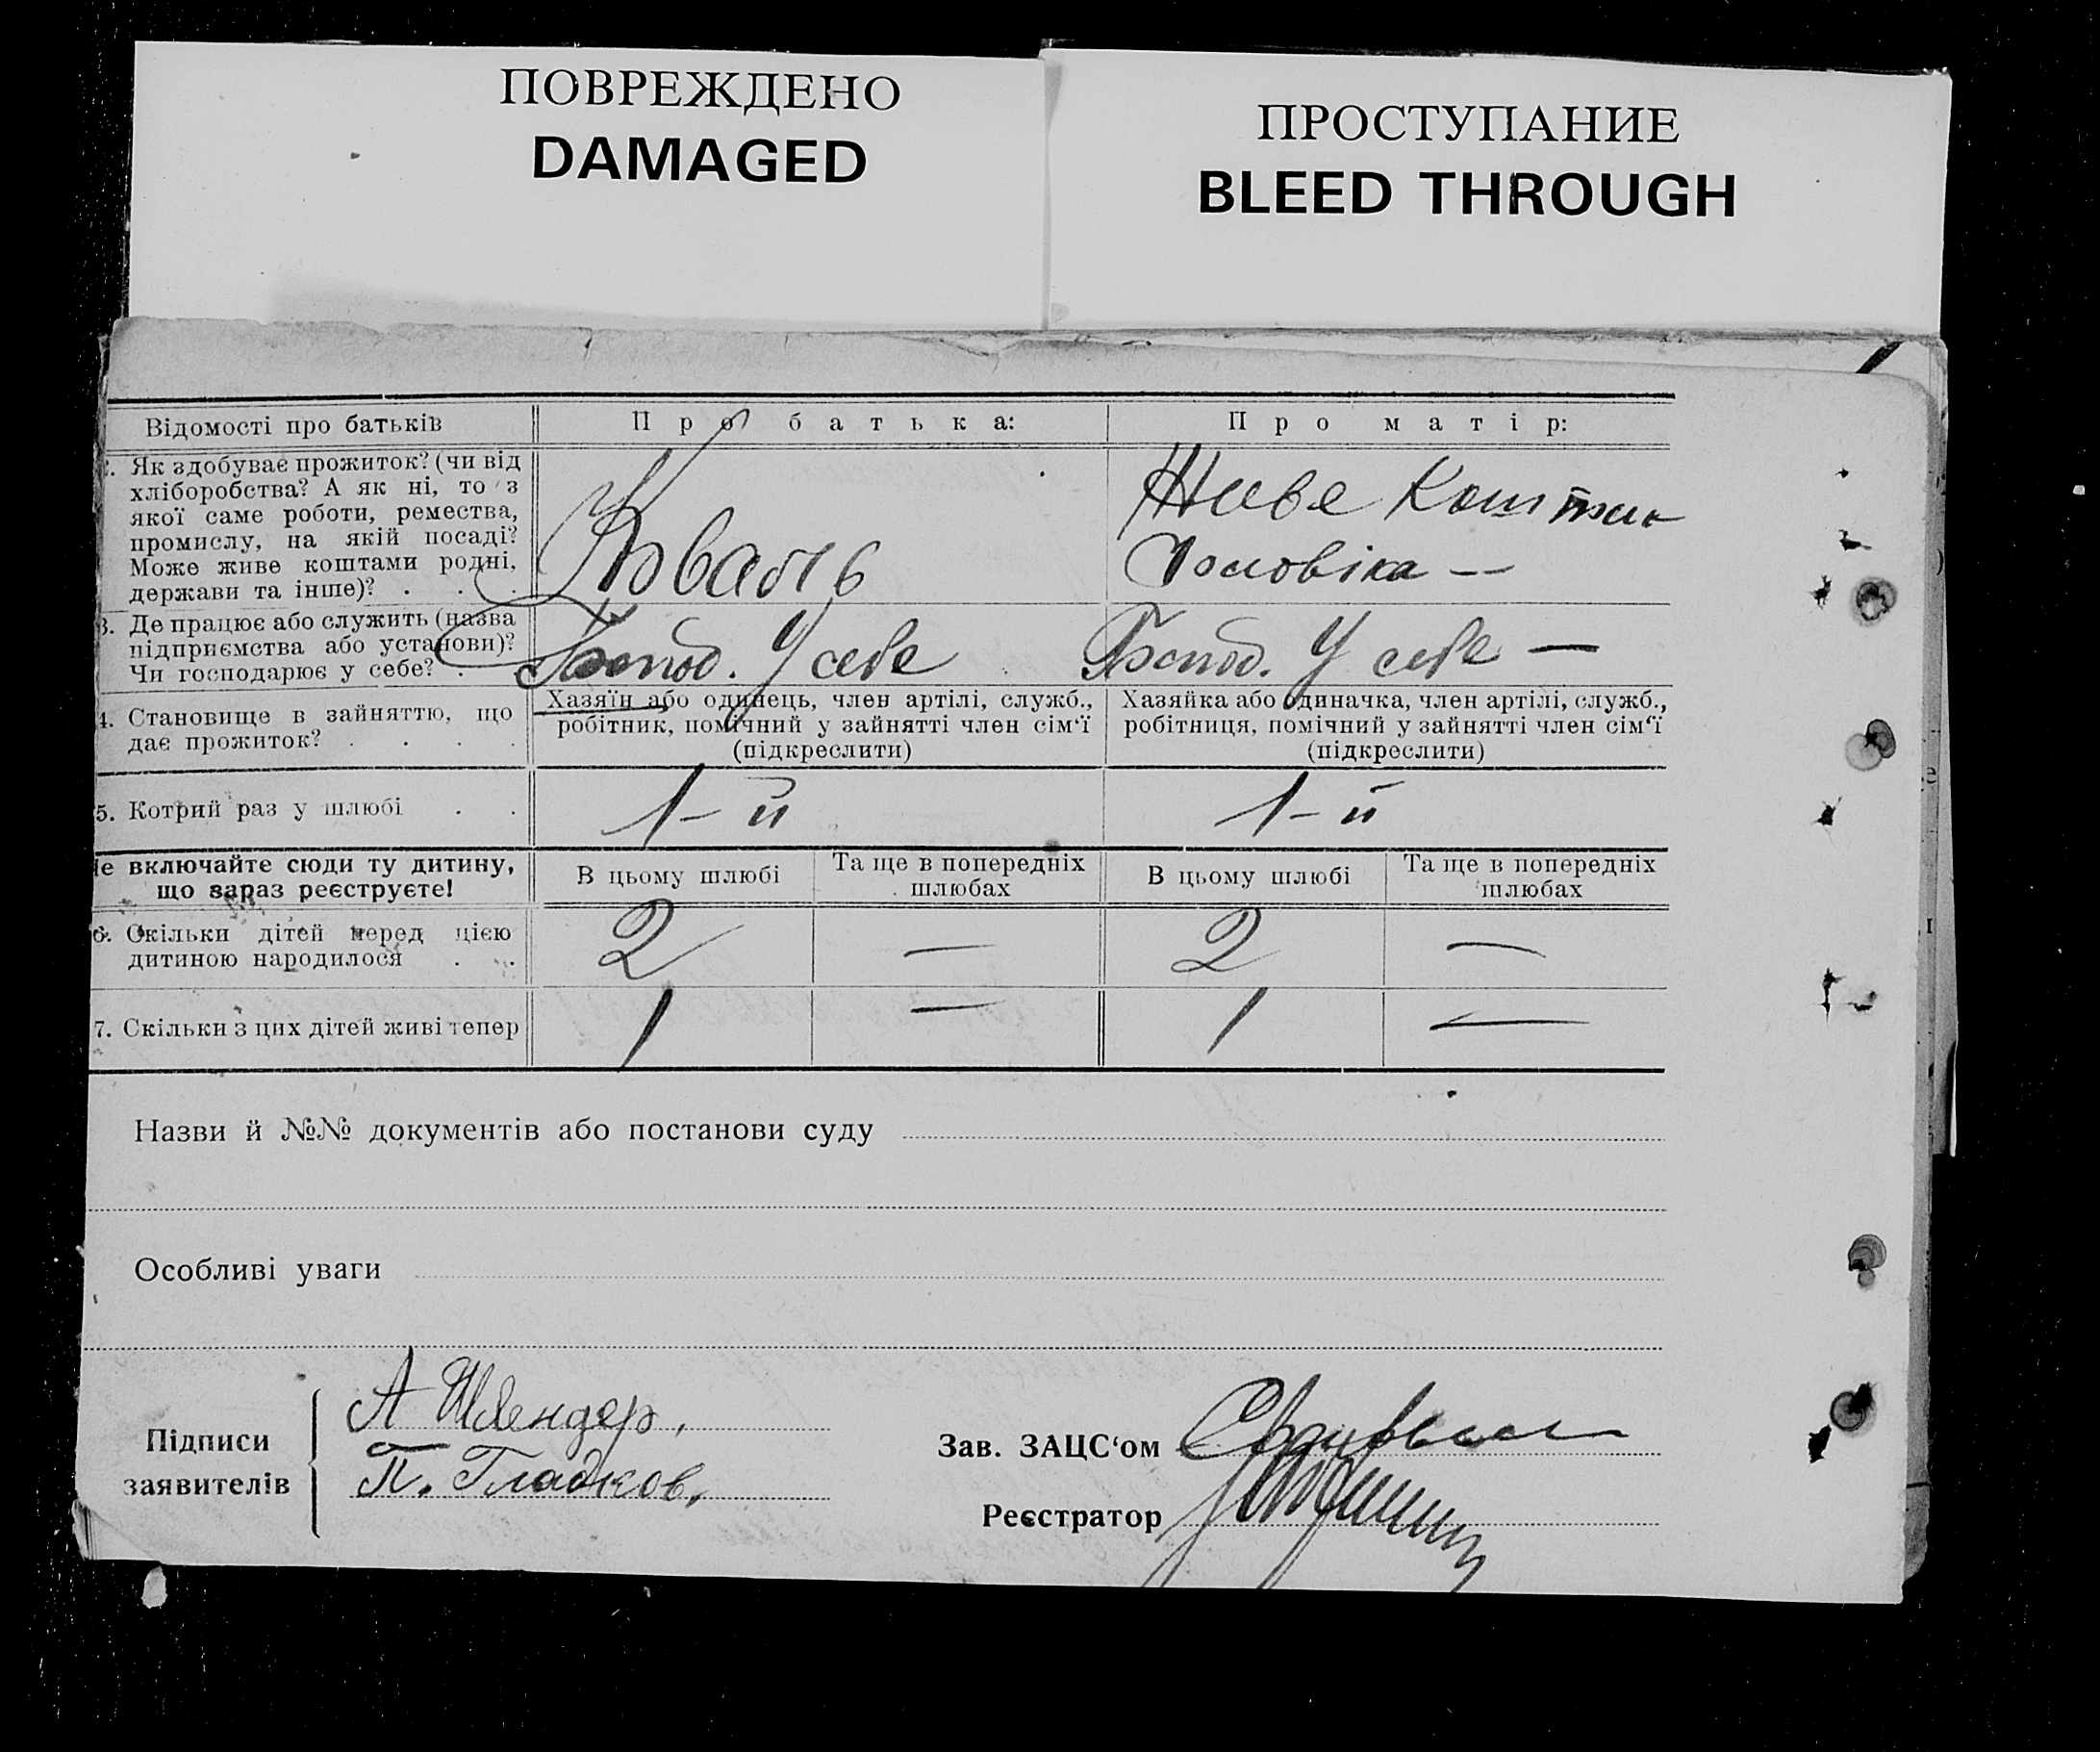 ПОВРЕЖДЕНО
DAMAGED
ПРОСТУПАНИЕ
BLEED THROUGH
Відомості про батьків
Про батька:
Про матір:
2. Як здобуває прожиток? (чи від
хліборобства? А як ні, то з
якої саме роботи, ремества,
промислу, на якій посаді?
Може живе коштами родні,
держави та інше)? . . .
Коваль
Живе Коштами
Чоловіка —
3. Де працює або служить (назва
підприємства або установи)?
Чи господарює у себе? .
Господ. У себе
Господ. У себе —
4. Становище в зайняттю, що
дає прожиток? . . . .
Хазяїн або одинець, член артілі, служб.,
робітник, помічний у зайнятті член сім‘ї
(підкреслити)
Хазяйка або одиначка, член артілі, служб.,
робітниця, помічний у зайнятті член сім‘ї
(підкреслити)
5. Котрий раз у шлюбі . .
1-й
1-й
Не включайте сюди ту дитину,
що зараз реєструєте!
В цьому шлюбі
Та ще в попередніх
шлюбах
В цьому шлюбі
Та ще в попередніх
шлюбах
6. Скільки дітей перед цією
дитиною народилося . .
2
—
2
—
7. Скільки з цих дітей живі тепер
1
—
1
—
Назви й №№ документів або постанови суду
Особливі уваги
Підписи
заявителів
А Швендер,
П. Гладков,
Зав. ЗАЦС‘ом
Реєстратор